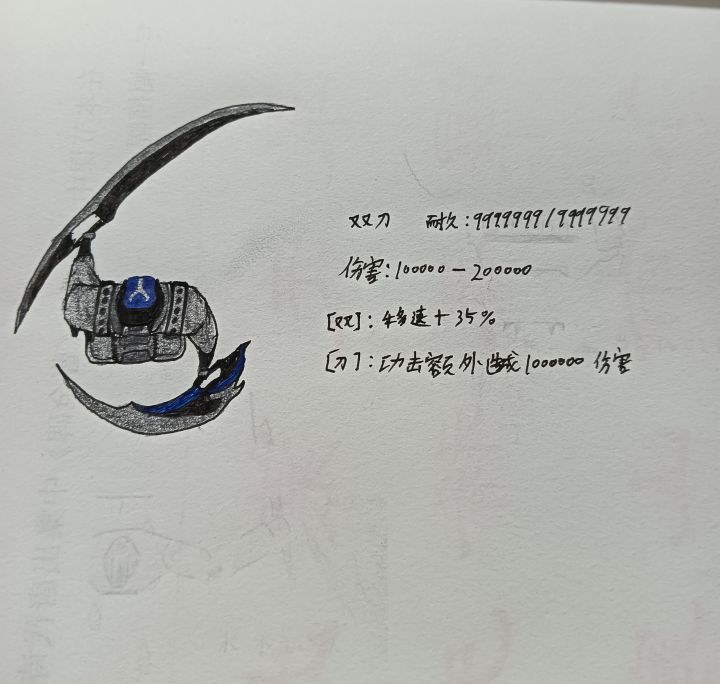 双刀 耐久:9999999/9999999
伤害:100000-200000
[双]:移速+35%
[刀]:功击额外 1000000 伤害